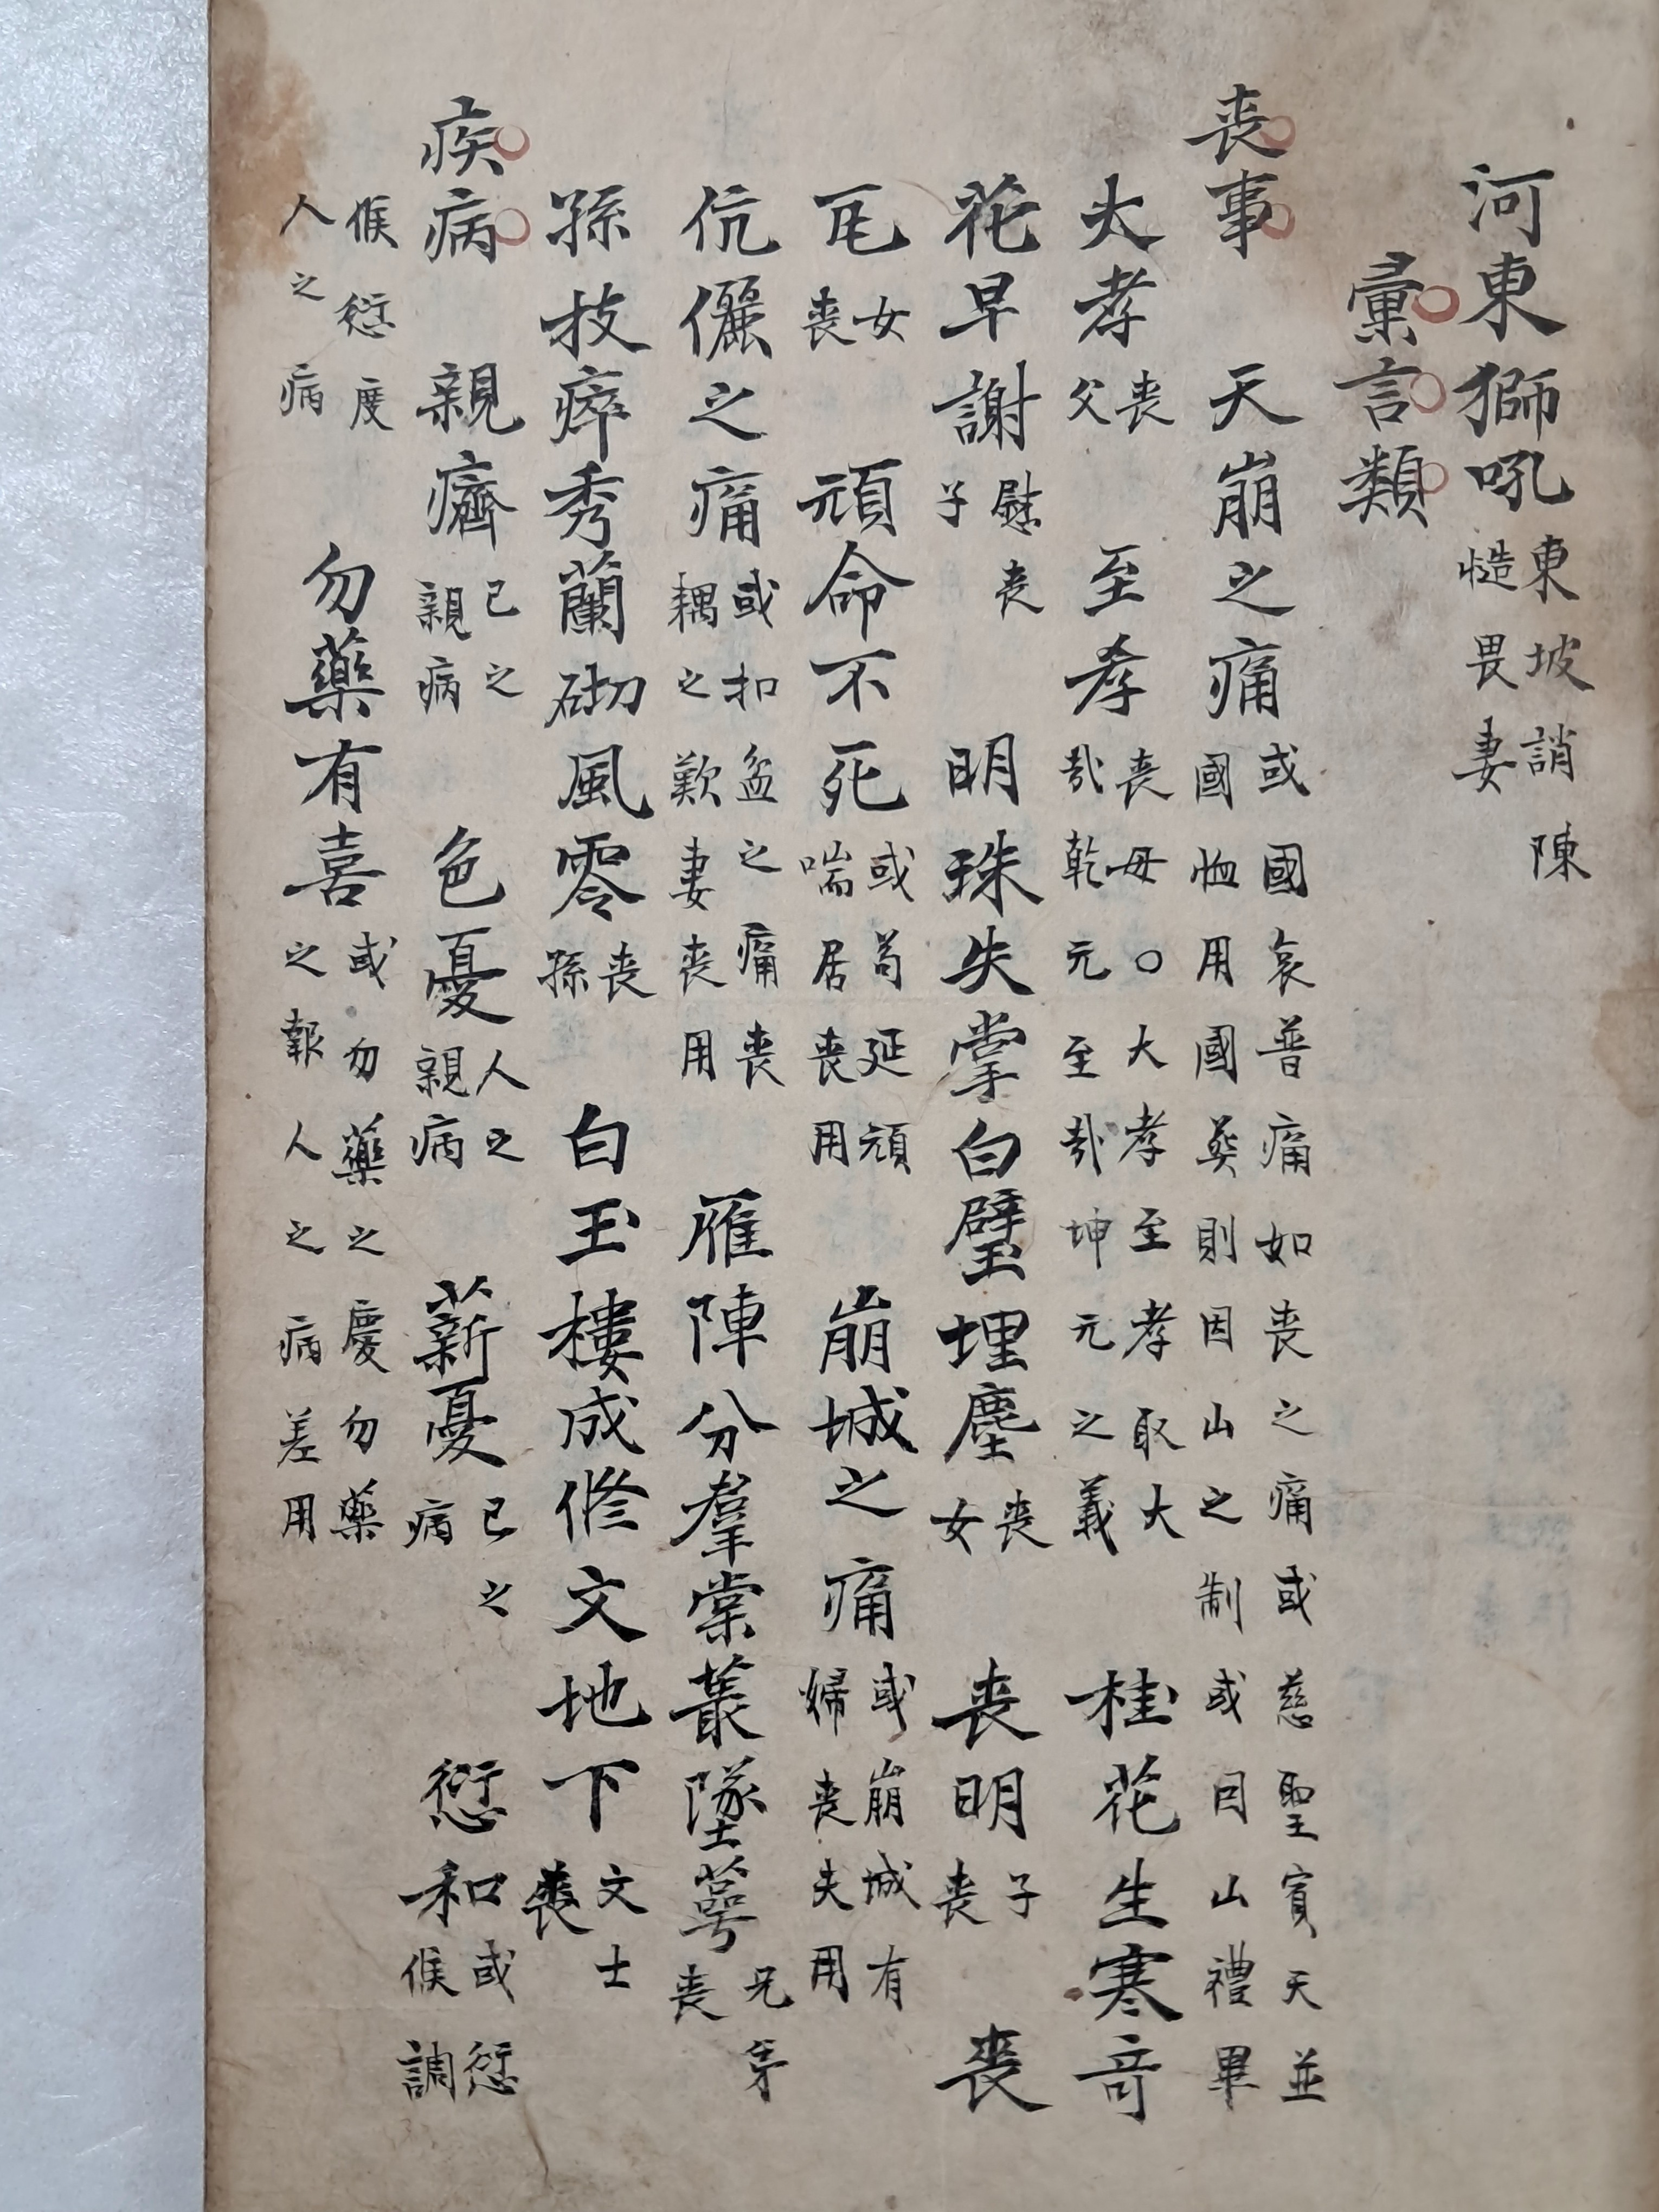 河東獅吼東坡誚陳慥畏妻
彙言類
丧事 天崩之痛或國哀普痛如丧之痛或慈聖賓天並國恤用國葬則因山之制或因山禮畢
大孝丧父 至孝丧母〇大孝至孝取大哉乾元至哉坤元之義 桂花生寒奇
花早謝慰丧子 明珠失掌白璧埋塵丧女 丧明子丧 丧
瓦女丧 頑命不死或苟延頑喘居丧用 崩城之痛或崩城有婦丧夫用
伉儷之痛或扣盆之痛丧耦之歎妻丧用 雁陣分羣棠叢墜萼兄弟丧
孫枝瘁秀蘭砌風零丧孫 白玉樓成修文地下文士丧
疾病 親癠己之親病 色憂人之親病 薪憂己之病 愆和或愆候調
候愆度人之病 勿藥有喜或勿藥之慶勿藥之報人之病差用